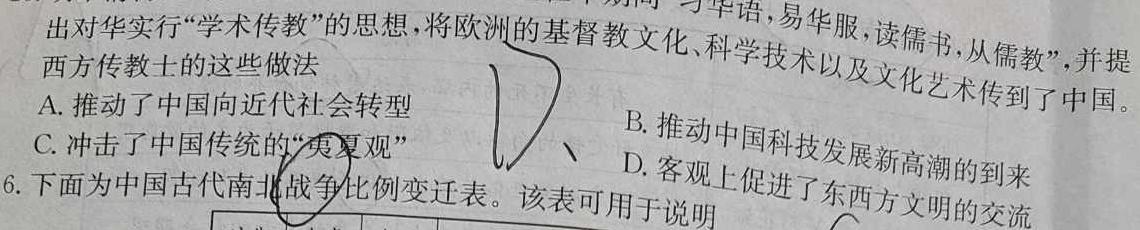 习华语,易华服,读儒书,从儒教”,并提
出对华实行“学术传教”的思想,将欧洲的基督教文化、科学技术以及文化艺术传到了中国。
西方传教士的这些做法
A. 推动了中国向近代社会转型
B. 推动中国科技发展新高潮的到来
C. 冲击了中国传统的“夷夏观”
D. 客观上促进了东西方文明的交流
6. 下面为中国古代南北战争比例变迁表。该表可用于说明